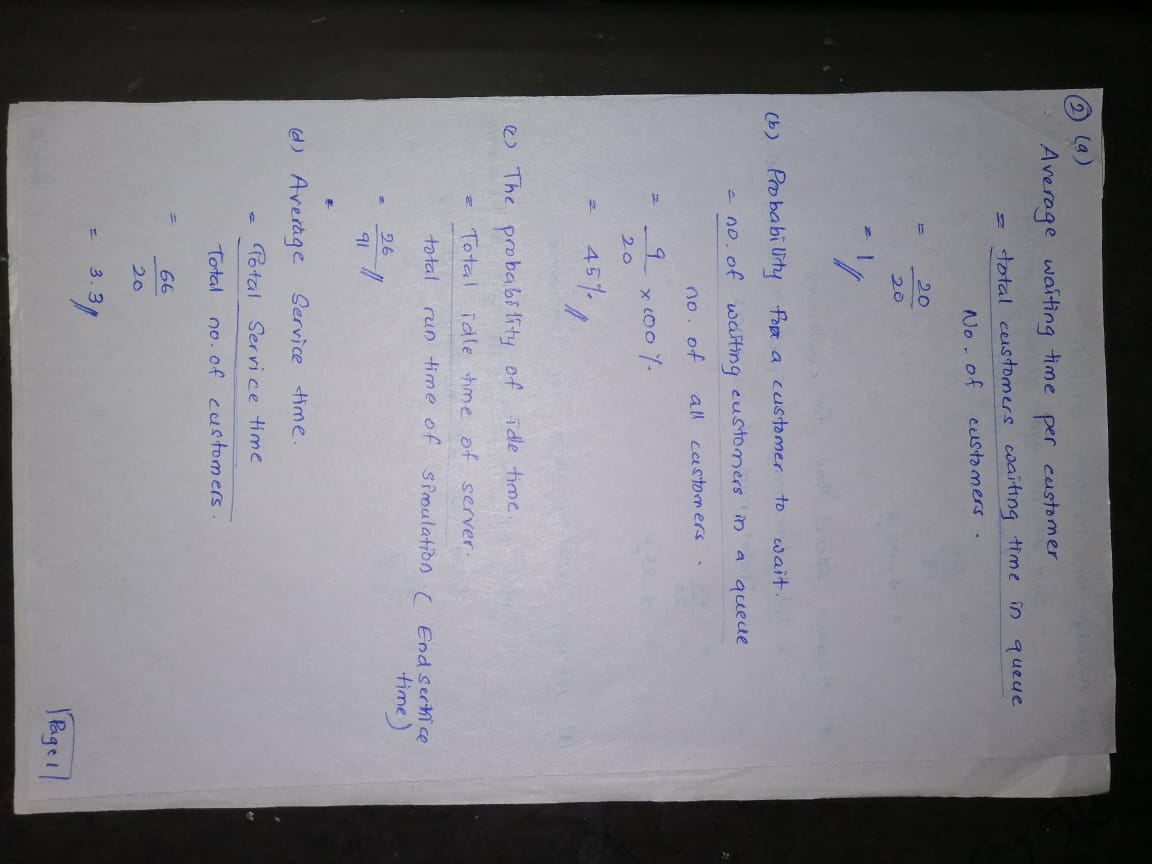 ② (a)
Average waiting time per customer
= total customers waiting time in queue
No. of customers.
= 20
20
= 1 //
(b) Probability for a customer to wait.
= no. of waiting customers in a queue
no. of all customers.
= 9 × 100 %
20
= 45% //
(c) The probability of idle time.
= Total idle time of server.
total run time of simulation (End service
time)
= 26 //
91
(d) Average Service time.
= Total Service time
Total no. of customers.
= 66
20
= 3.3 //
Page 1